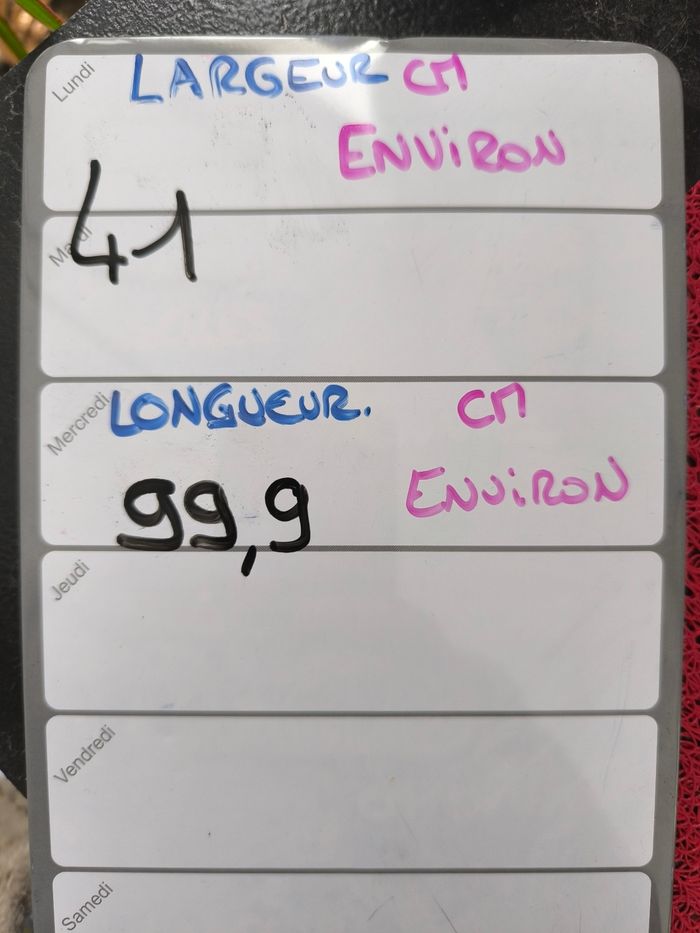 Lundi
LARGEUR CM
ENVIRON
Mardi
41
Mercredi
LONGUEUR. CM
99,9 ENVIRON
Jeudi
Vendredi
Samedi